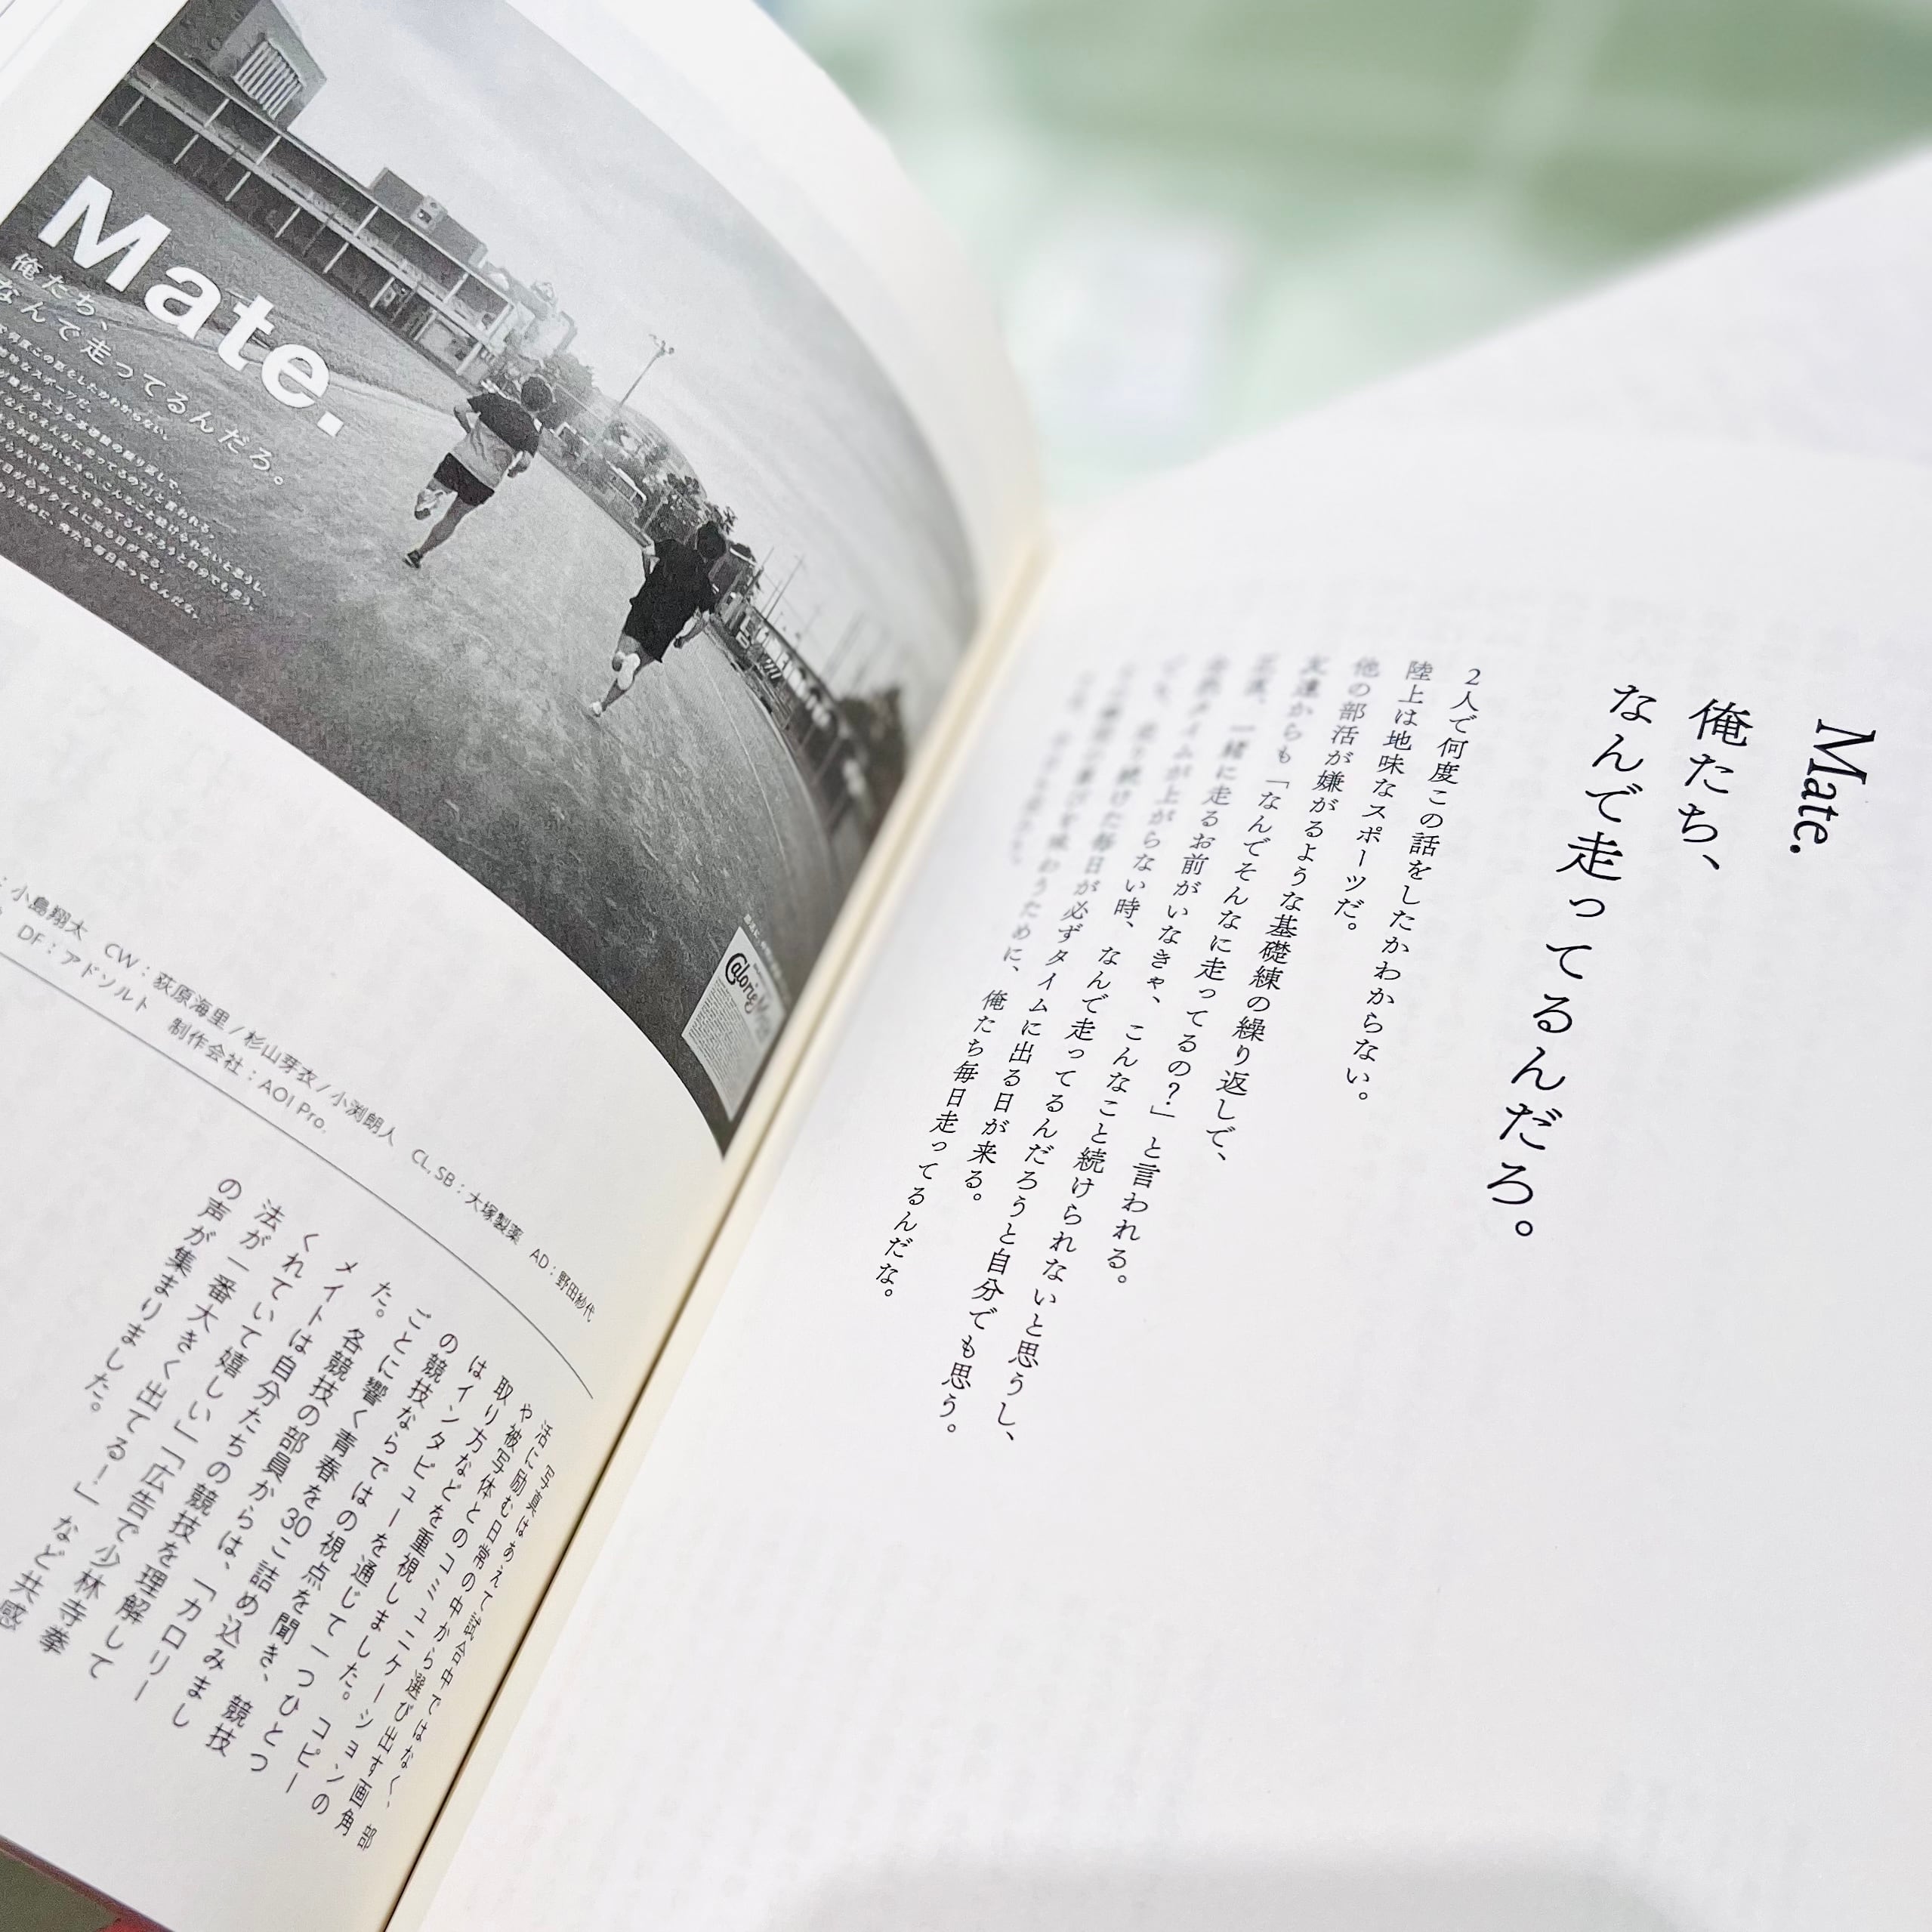 Mate.
俺たち、
なんで走ってるんだろ。
2人で何度この話をしたかわからない。
陸上は地味なスポーツだ。
他の部活が嫌がるような基礎練の繰り返しで、
友達からも「なんでそんなに走ってるの?」と言われる。
正直、一緒に走るお前がいなきゃ、こんなこと続けられないと思うし、
全然タイムが上がらない時、なんで走ってるんだろうと自分でも思う。
でも、走り続けた毎日が必ずタイムに出る日が来る。
味わうために、俺たち毎日走ってるんだな。
Mate.
俺たち、
なんで走ってるんだろ。
小島翔太 CW：荻原海里/杉山芽衣/小渕朗人 CL, SB：大塚製薬 AD：野田紗代
DF：アドソルト 制作会社：AOI Pro.
写真はあえて試合中ではなく、部
活に励む日常の中から選び出す画角
や被写体とのコミュニケーションの
取り方などを重視しました。コピー
はインタビューを通じて一つひとつ
の競技ならではの視点を聞き、競技
ごとに響く青春を30こ詰め込みまし
た。各競技の部員からは、「カロリー
メイトは自分たちの競技を理解して
くれていて嬉しい」「広告で少林寺拳
法が一番大きく出てる！」など共感
の声が集まりました。